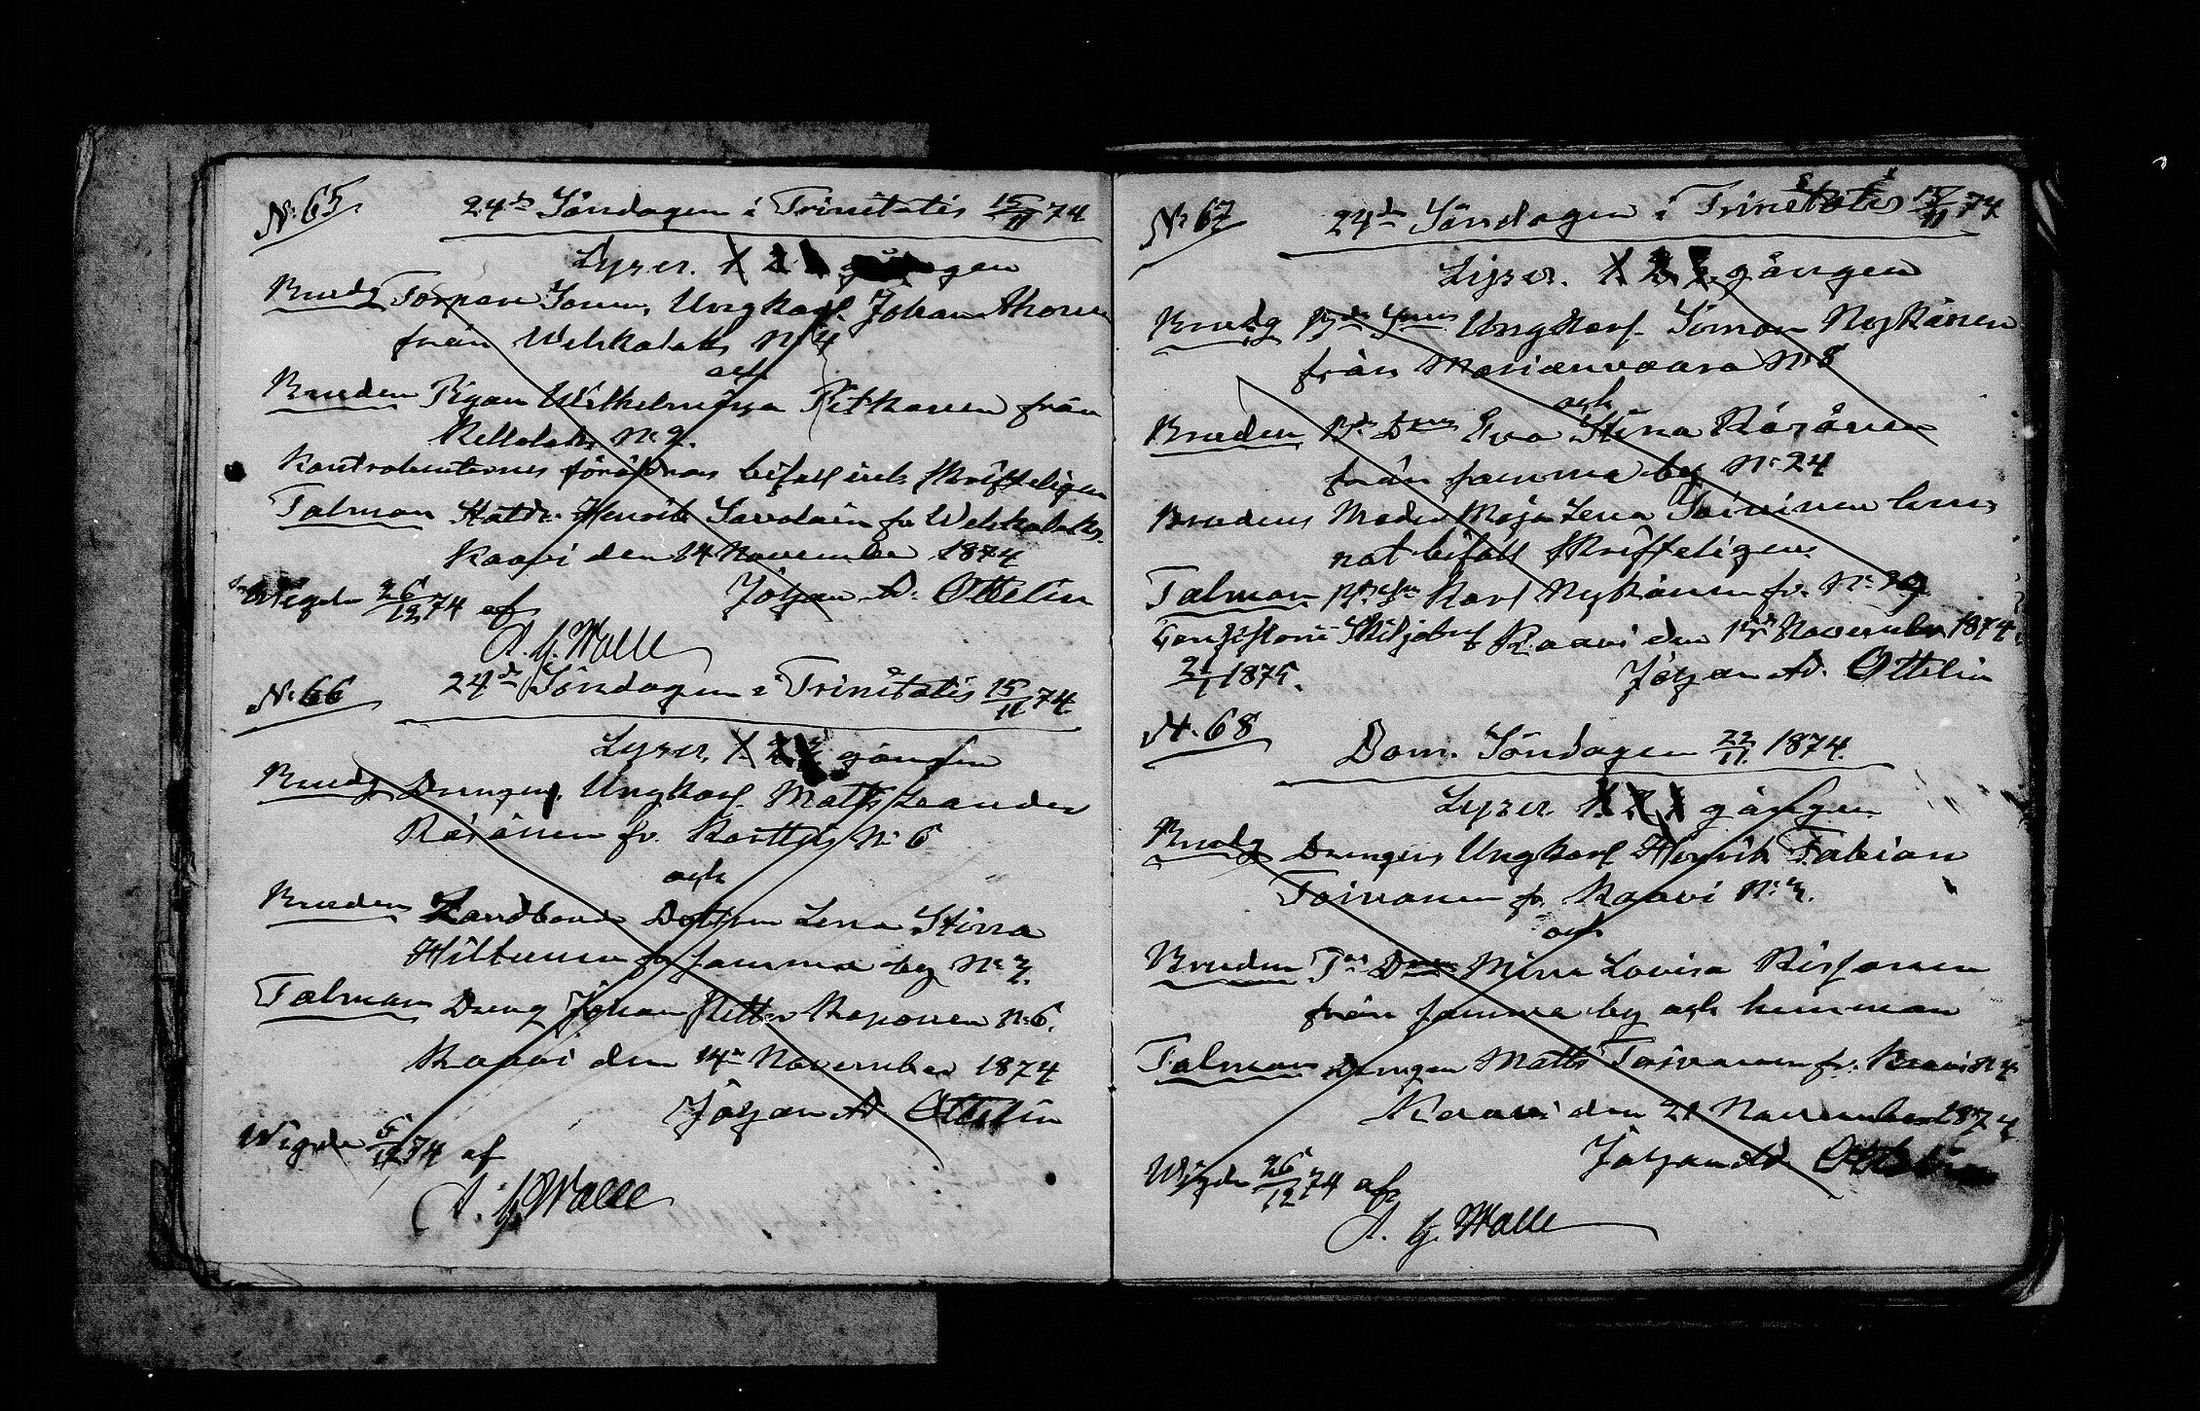 N:65 24de Söndagen i Trinitatis 15/11 74
Lyser. 1 2 gången
Brudg Torpare Sonen, Ungkarl Johan Ahonen
från Wehkalaks N:4
och
Bruden Pigan Wilhelmina Pitkänen från
N:2.
Kontrahenternes föräldrars bifall skrifteligen
Talman Henrik Savolain fr Wehkalaks.
Kaavi den 14 November 1874
Wigde 26/12 74 af Johan A. Ottelin
A. G. Walle
N:66 24de Söndagen i Trinitatis 15/11 74
Lyser. 1. 2 3 gången
Brudg Drängen, Ungkarl Matts Leander
Räsänen fr. Kortteis N:6
och
Bruden Landbonde Dottren Lena Stina
Hiltunen fr samma by N:7.
Talman Dreng Johan Petter Kaponen N:6.
Kaavi den 14de November 1874
Johan Ad Ottelin
Wigde 6/12 74 af
A. G. Walle
N:67 24de Söndagen i Trinitatis 15/11 74
Lyser. 1 2 3 gången
Brudg Bde Sonen Ungkarl Simon Nykänen
från Marianvaara N:8
och
Bruden Bde Dren Eva Stina Räsänen
från samma by N:24
Brudens Moder Maja Lena Toivinen lem-
nat bifall skrifteligen.
Talman Karl Nykänen fr. N:
Kaavi den 15de November 1874
2/1 1875. Johan Ad. Ottelin
N:68 Dom. Söndagen 22/11 1874.
Lyser 1 2 3 gången
Brudg Drengen, Ungkarl Henrik Fabian
Toivanen fr. Kaavi N:3.
och
Bruden Mina Lovisa Rissanen
från samma by och hemman
Talman Drengen Matts Toivanen fr. Kaavi N 4
Kaavi den 21 November 1874
Johan Ad. Ottelin
Wigde 26/12 74 af
A. G. Walle